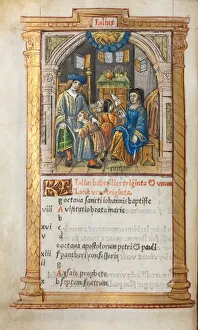 Julius
KL Julius habet dies triginta & unum
Luna vero triginta.
g Octava sancti iohannis baptiste
viii A Visitatio beate marie
xvi b
v c
d Octava apostolorum petri & pauli
xiii e
ii f pantheri confessoris
g
x A Isaie prophete
b Septem fratrum